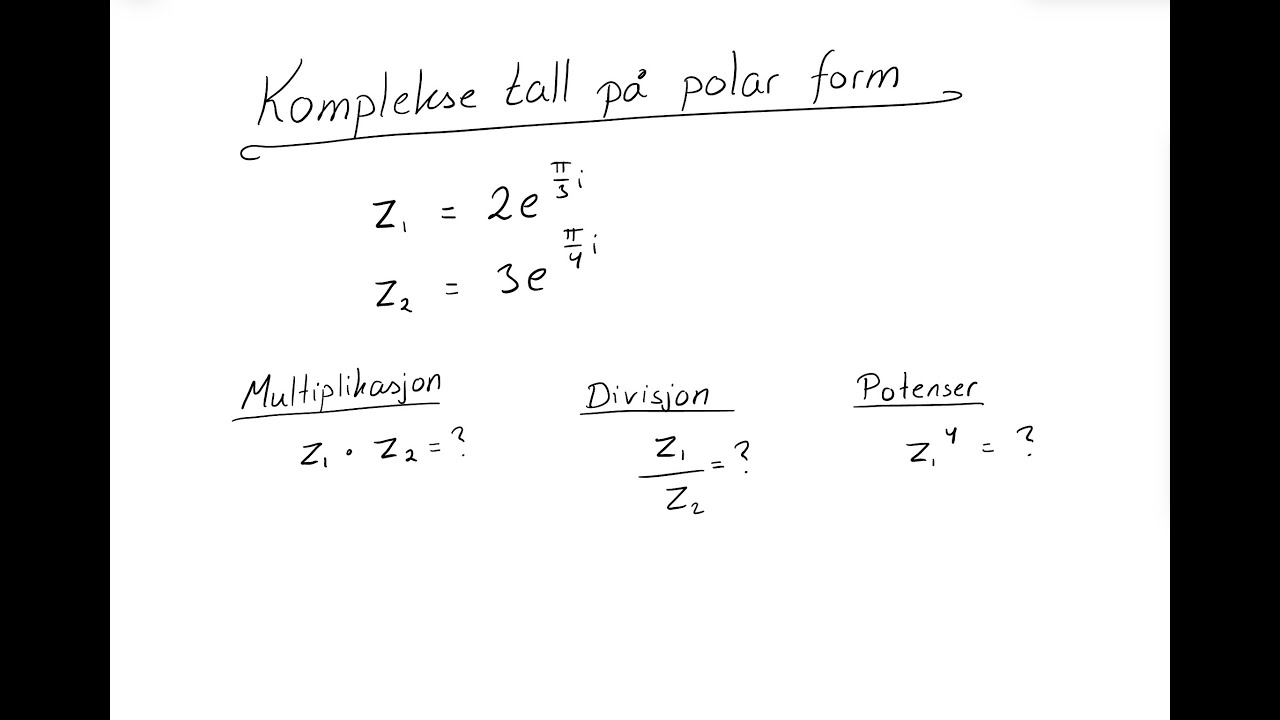 Komplekse tall på polar form
z₁ = 2e^{π/3 i}
z₂ = 3e^{π/4 i}
Multiplikasjon
z₁ · z₂ = ?
Divisjon
z₁/z₂ = ?
Potenser
z₁⁴ = ?